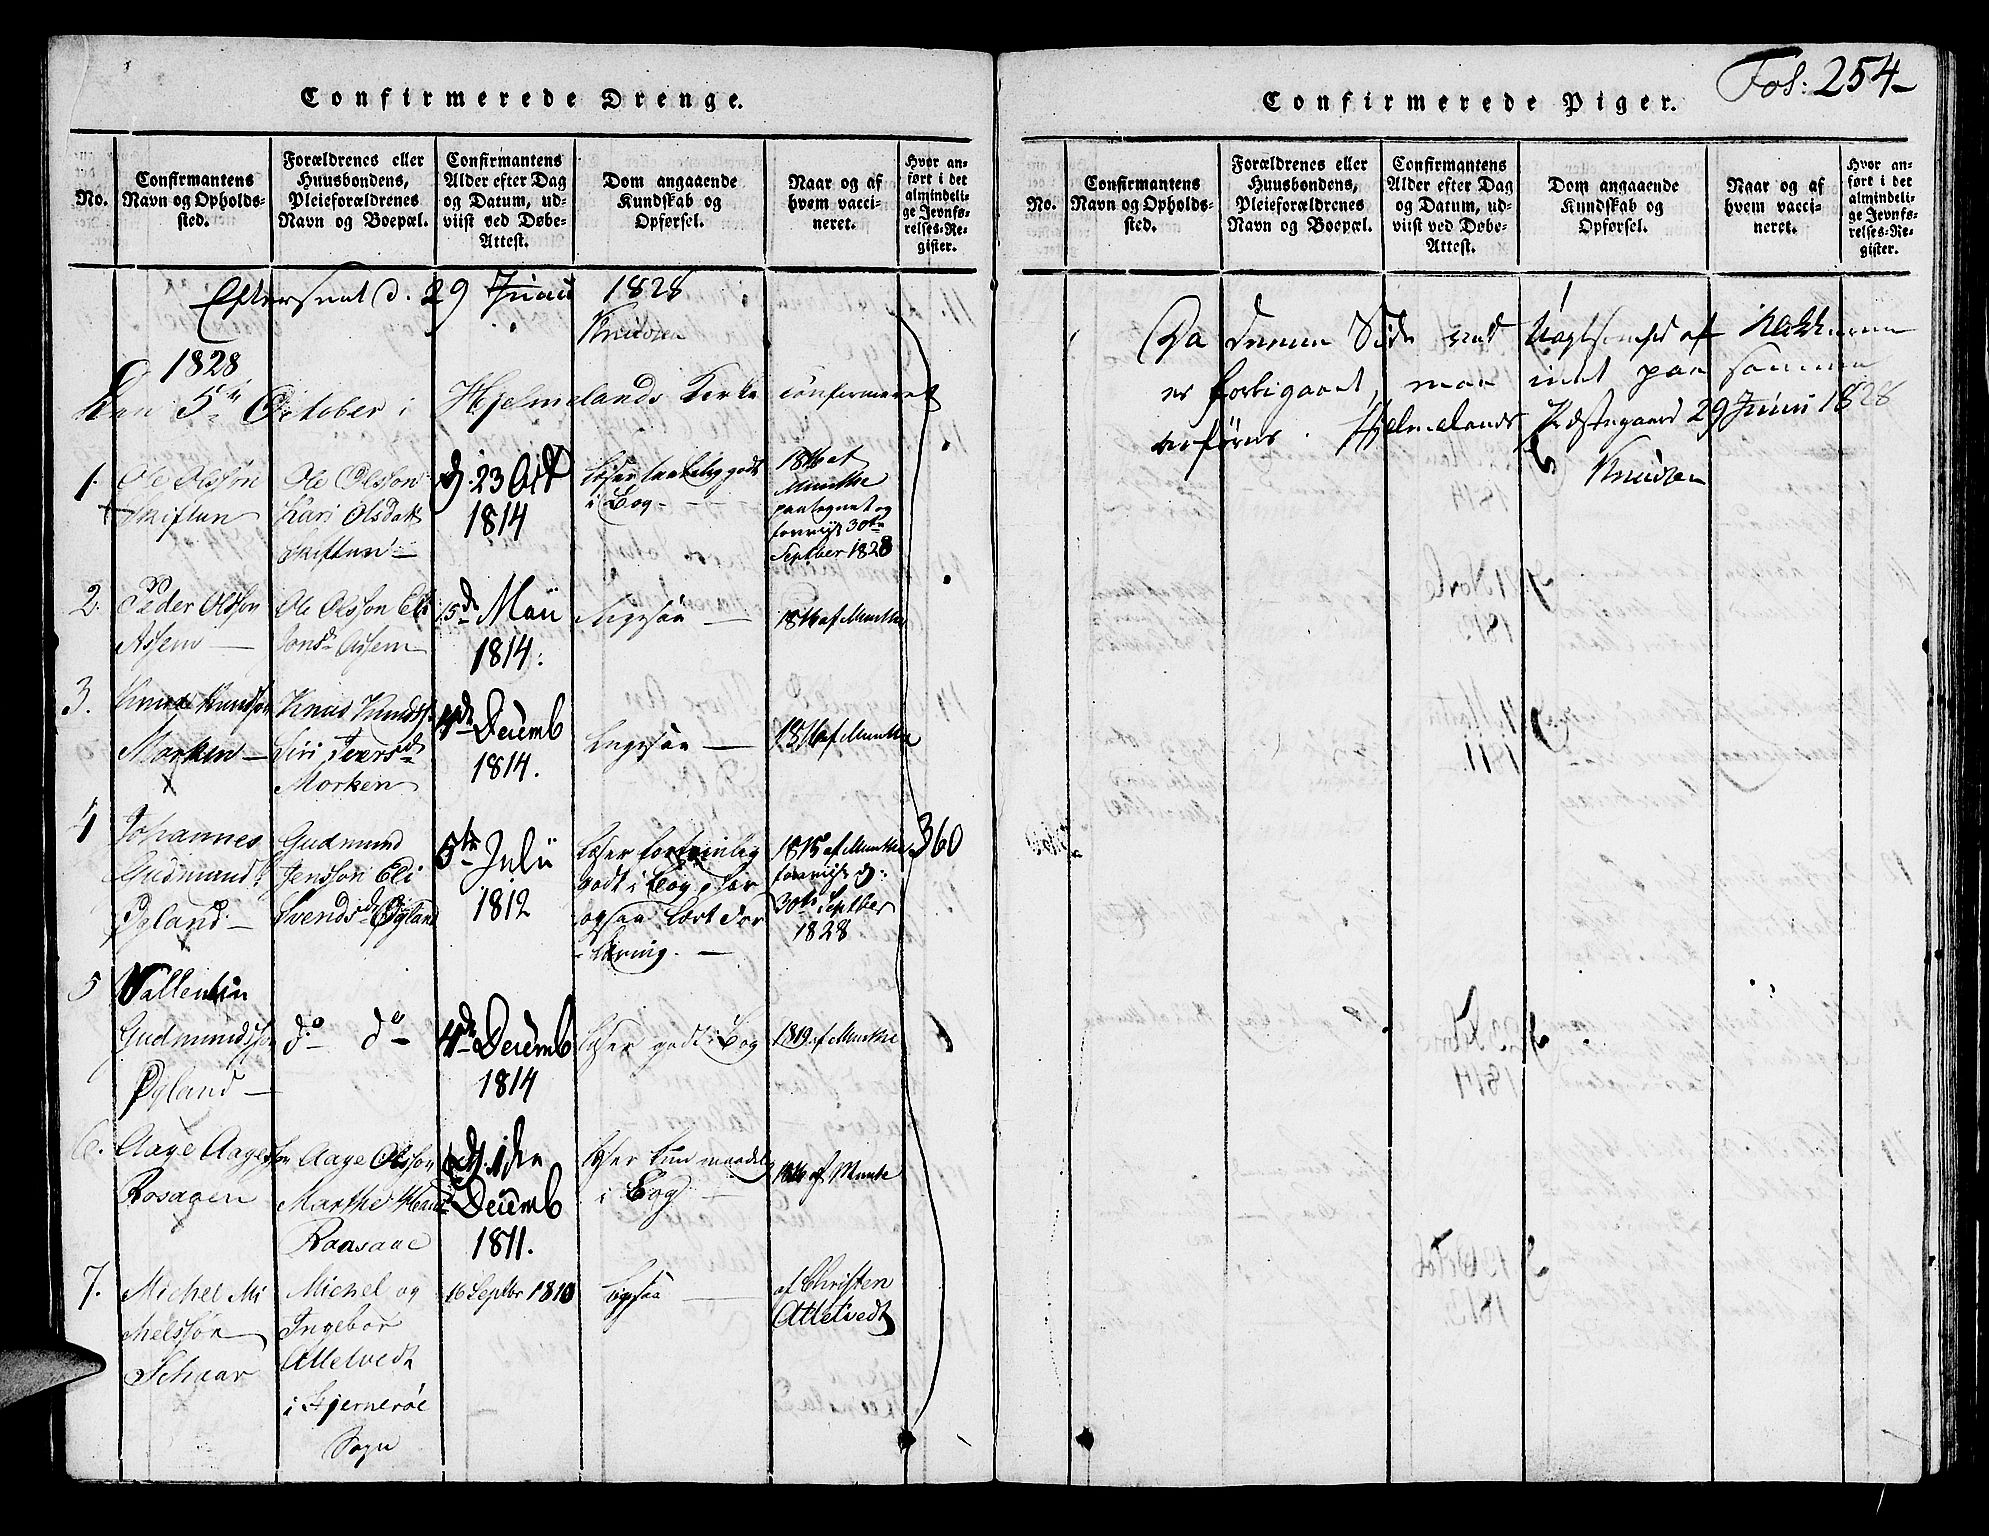 Fol: 254
Confirmerede Drenge.
No.
Confirmantens
Navn og Opholds-
sted.
Forældrenes eller
Huusbondens,
Pleieforældrenes
Navn og Boepæl.
Confirmantens
Alder efter Dag
og Datum, ud-
viist ved Døbe-
Attest.
Dom angaaende
Kundskab og
Opførsel.
Naar og af
hvem vacci-
neret.
Hvor an-
ført i det
almindeli-
ge Jevnfø-
relses-Re-
gister.
Efterseet d. 29 Junii 1828
Knudsen
1828
Den 5te October i Hjelmelands Kirke confirmeret
1.
Ole Olssøn
Skiftun
Ole Olsson
Kari Olsdatt
Skiftun
d. 23 Oct
1814
Læser
i Bog
1816 af
Munthe
30te
Septber 1828
2.
Peder Olsson
Assem
Ole Olsson Eli
Jonsd. Assem
15de Maii
1814.
Ligesaa
1816 af Munthe
3.
Knud Knudson
Morken
Knud Knuds
Siri Iversd
Morken
4de Decemb
1814.
Ligesaa
1816 af Munthe
4
Johannes
Gudmunds
Øgland
Gudmund
Jensson Eli
Svendsd. Øgland
5te Julii
1812
Læser
godt i Bog, har
ogsaa lært For
-klaring.
1815 af Munthe
30te Septber
1828
360
5
Vallentin
Gudmundsson
Øgland
do do
4de Decemb
1814
Læser godt i Bog
1819 af Munthe
6.
Aage Aageson
Rosagen
Aage Olsson
Marthe
Raasaae
d. 1den
Decemb
1811.
Læser kun maadelig
i Bog
1816 af Munthe
7.
Michel Mi
chelssøn
Schaar
Michel og
Ingebor
Attetvedt
i Sjernerøe
Sogn
16 Septbr 1810
Ligesaa
af Christen
Attetvedt
Confirmerede Piger.
No.
Confirmantens
Navn og Opholds-
sted.
Forældrenes eller
Huusbondens,
Pleieforældrenes
Navn og Boepæl.
Confirmantens
Alder efter Dag
og Datum, ud-
viist ved Døbe-
Attest.
Dom angaaende
Kundskab og
Opførsel.
Naar og af
hvem vacci-
neret.
Hvor an-
ført i det
almindeli-
ge Jevnfø-
relses-Re-
gister.
Da denne Side ved Uagtsomhed af
er forbigaaet, maa intet paa samme
anføres. Hjelmelands Præstegaard 29 Junii 1828
Knudsen